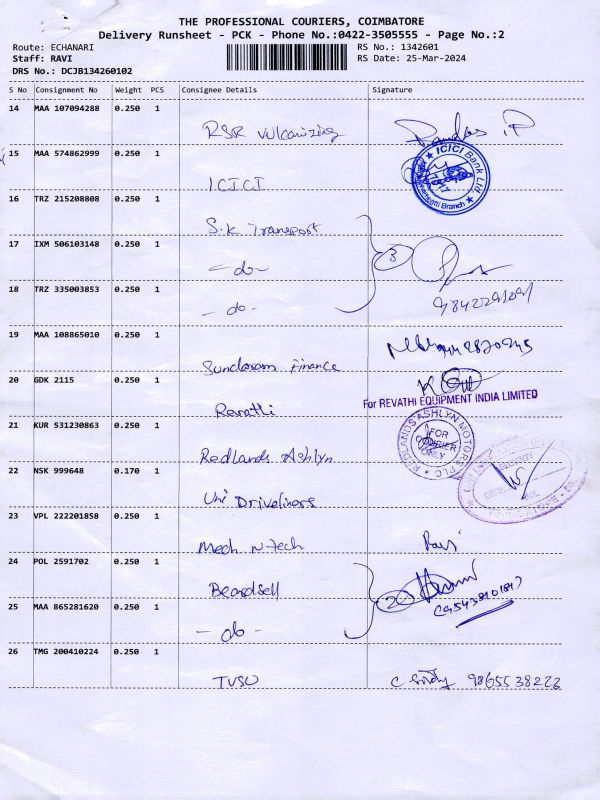 THE PROFESSIONAL COURIERS, COIMBATORE
Delivery Runsheet - PCK - Phone No.:0422-3505555 - Page No.:2
Route: ECHANARI
RS No.: 1342601
Staff: RAVI
RS Date: 25-Mar-2024
DRS No.: DCJB134260102
S No Consignment No Weight PCS Consignee Details Signature
14 MAA 107094288 0.250 1
RSR Vulcanizing
15 MAA 574862999 0.250 1
ICICI Bank Ltd.
Branch
ICICI
16 TRZ 215208808 0.250 1
S.K Transport
17 IXM 506103148 0.250 1
- do - 3
18 TRZ 335003853 0.250 1
- do -
19 MAA 108865010 0.250 1
Sundaram Finance
20 GDK 2115 0.250 1
For REVATHI EQUIPMENT INDIA LIMITED
Revathi
21 KUR 531230863 0.250 1
REDLANDS ASHLYN MOTORS PLC
FOR
COURIER
ONLY
Redlands Ashlyn
22 NSK 999648 0.170 1
Uni Driveliners
23 VPL 222201858 0.250 1
Mech N tech Ravi
24 POL 2591702 0.250 1
Beardsell
25 MAA 865281620 0.250 1
- do -
26 TMG 200410224 0.250 1
TVSU